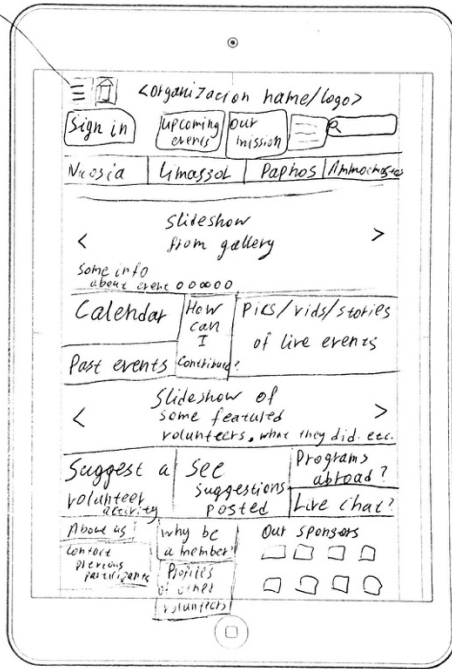 <organizacion name/logo>
Sign in
upcoming events
our mission
Nicosia
Limassol
Paphos
Ammochostos
Slideshow
from gallery
<
>
some info
about event
Calendar
How
can
I
Contribute?
Pics/vids/stories
of live events
Past events
Slideshow of
some featured
volunteers, what they did. etc.
<
>
Suggest a
volunteer
activity
See
suggestions
posted
Programs
abroad?
Live chat?
About us
Contact
previous
participants
why be
a member?
Profiles
of other
volunteers
Our sponsors